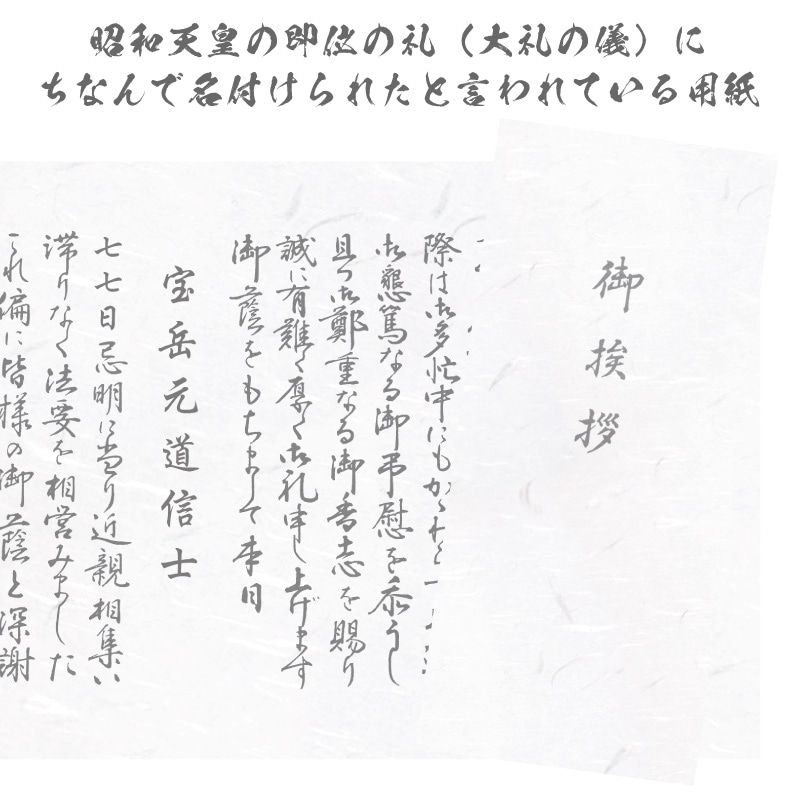 昭和天皇の即位の礼（大礼の儀）に
ちなんで名付けられたと言われている用紙
御挨拶
際は御多忙中にもかゝわらず
御懇篤なる御弔慰を忝うし
且つ御鄭重なる御香志を賜り
誠に有難く厚く御礼申し上げます
御蔭をもちまして本日
宝岳元道信士
七七日忌明に当り近親相集い
滞りなく法要を相営みました
これ偏に皆様の御蔭と深謝